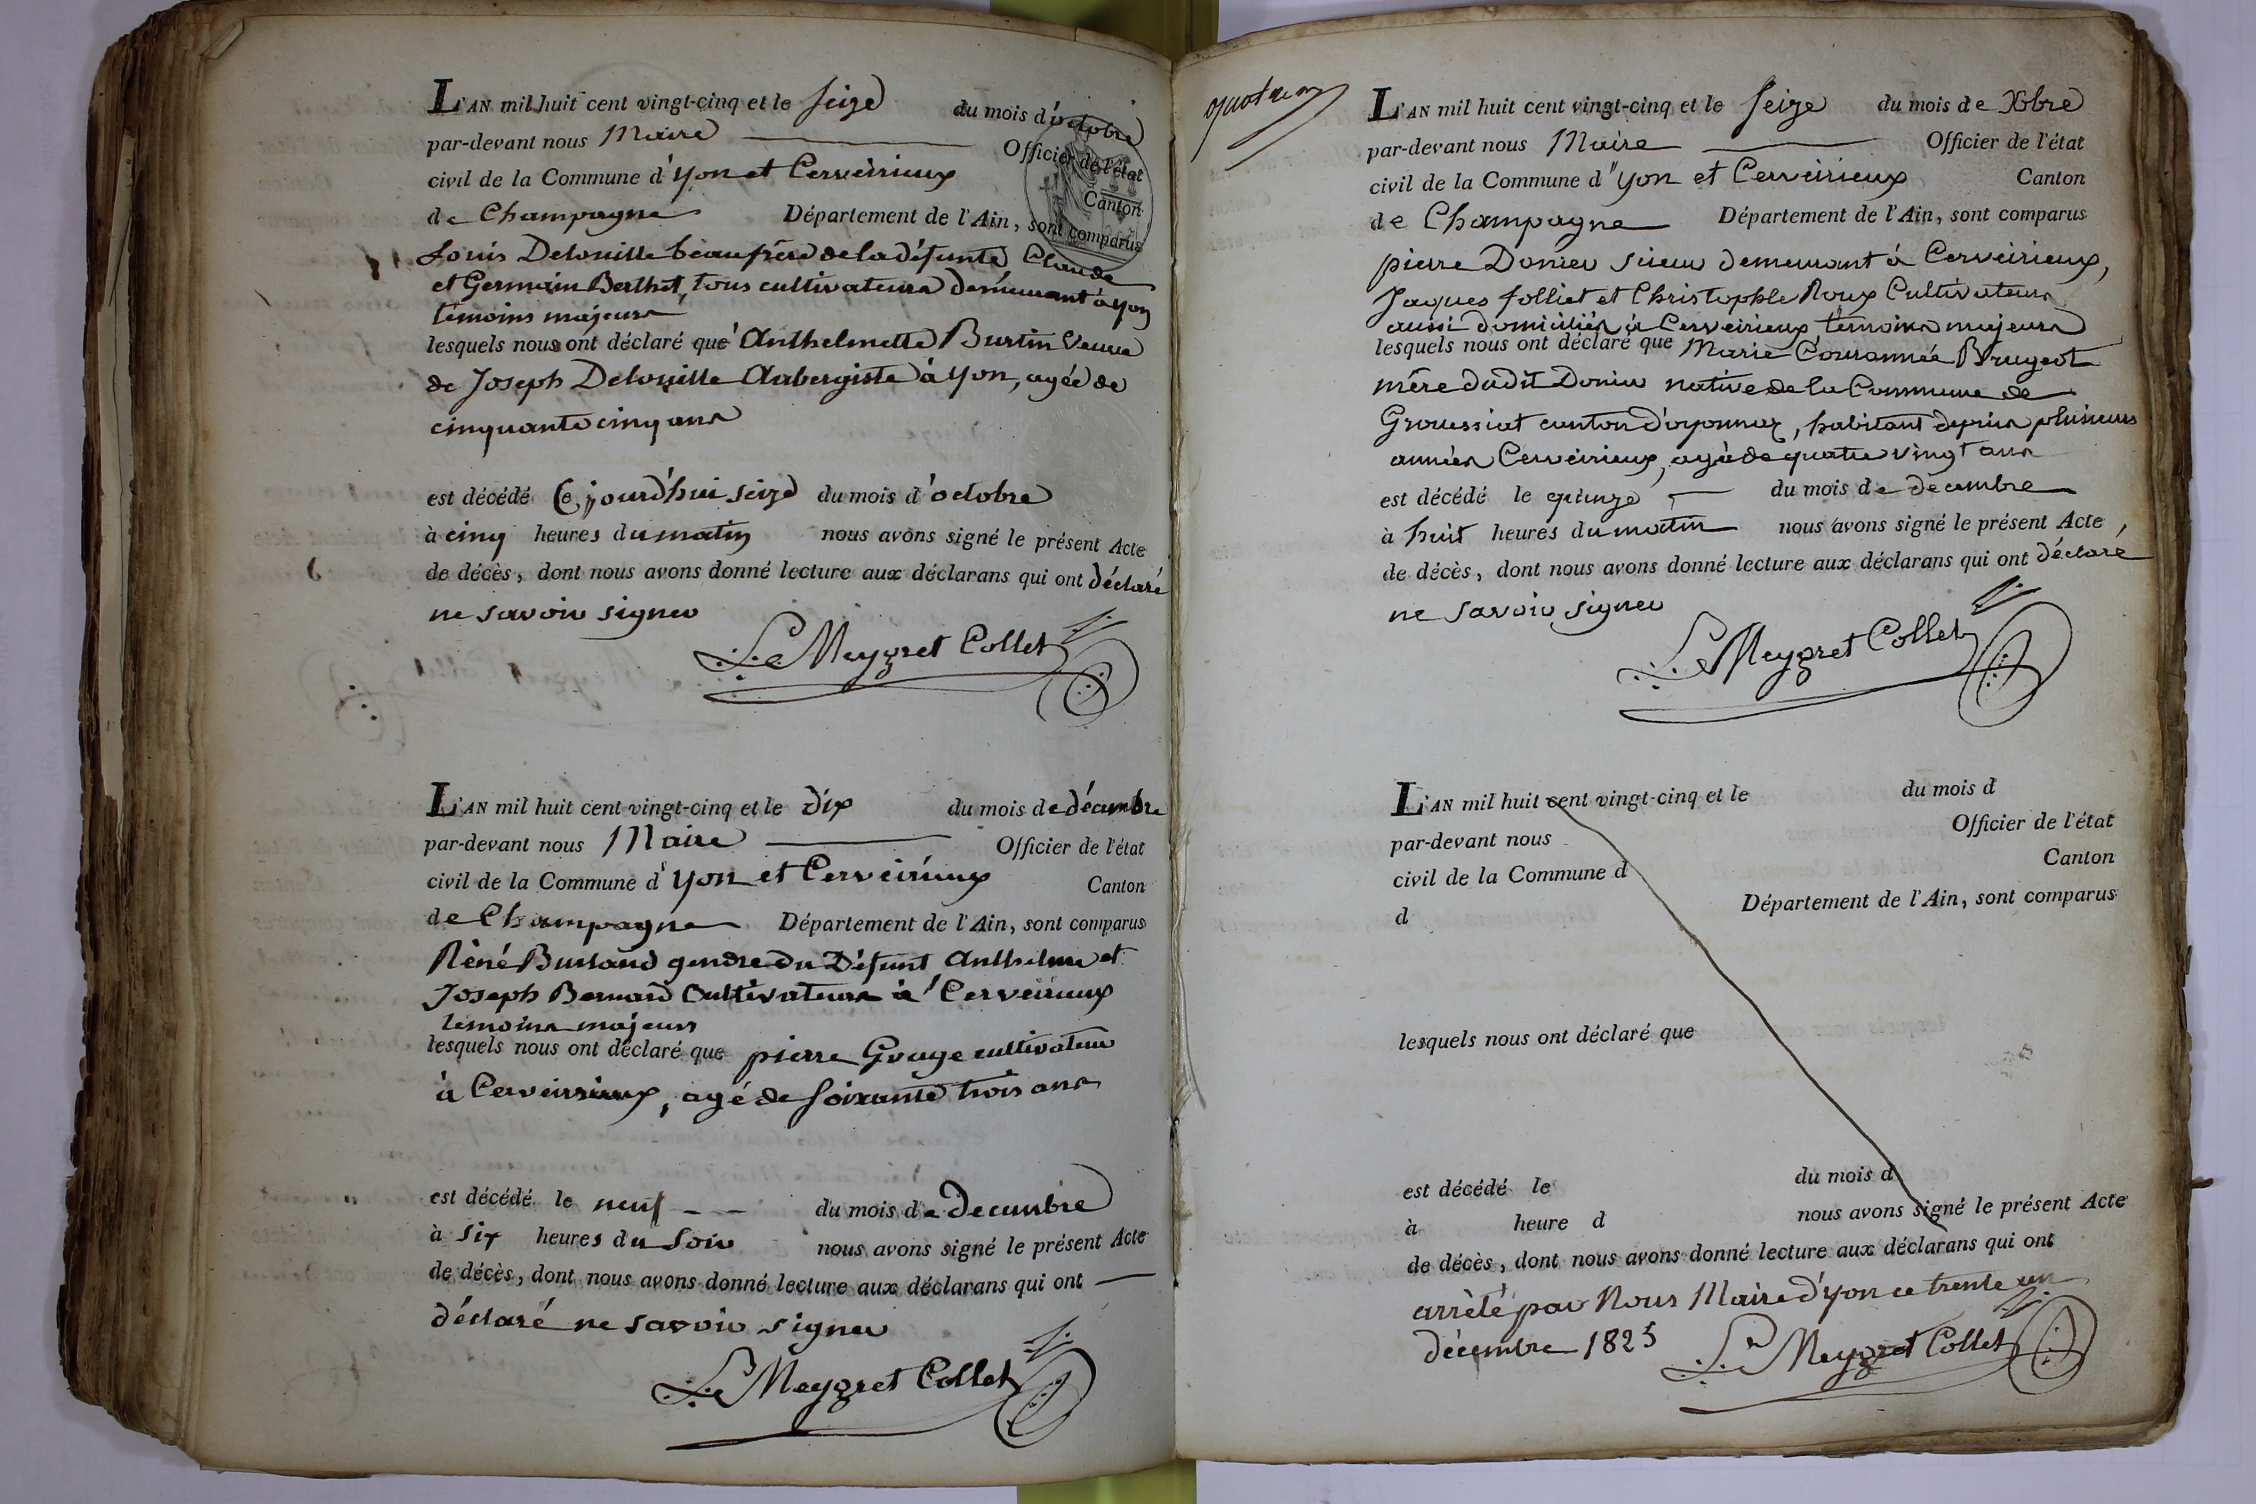 L'AN mil huit cent vingt-cinq et le seize du mois d'octobre
par-devant nous Maire Officier de l'état
civil de la Commune d'yon et Cerveirieux Canton
de Champagne Département de l'Ain, sont comparus
Louis Delouille beaufrère de la défunte Claude
et Germain Berthet, tous cultivateurs demeurant à yon
temoins majeurs
lesquels nous ont déclaré que Anthelmette Burtin veuve
de Joseph Delouille Aubergiste à yon, agée de
cinquante cinq ans
est décédé Ce jourd'hui seize du mois d'octobre
à cinq heures du matin nous avons signé le présent Acte
de décès, dont nous avons donné lecture aux déclarans qui ont déclaré
ne savoir signer
Le Meygret Collet
L'AN mil huit cent vingt-cinq et le dix du mois de décembre
par-devant nous Maire Officier de l'état
civil de la Commune d'yon et Cerveirieux Canton
de Champagne Département de l'Ain, sont comparus
Réné Burtand gendre du Défunt Anthelme et
Joseph Bernard Cultivateurs à Cerveirieux
temoins majeurs
lesquels nous ont déclaré que pierre Grage cultivateur
à Cerveirieux, agé de soixante trois ans
est décédé le neuf du mois de Decembre
à six heures du soir nous avons signé le présent Acte
de décès, dont nous avons donné lecture aux déclarans qui ont
déclaré ne savoir signer
Le Meygret Collet
L'AN mil huit cent vingt-cinq et le seize du mois de Xbre
par-devant nous Maire Officier de l'état
civil de la Commune d'yon et Cerveirieux Canton
de Champagne Département de l'Ain, sont comparus
pierre Donier scieur demeurant à Cerveirieux,
Jaques folliet et Christophle Roux Cultivateurs
aussi domiciliés à Cerveirieux temoins majeurs
lesquels nous ont déclaré que Marie Couronnée Brugeot
mère dudit Donier native de la Commune de
Grouessiat canton d'oyonnax, habitant depuis plusieurs
années Cerveirieux, agée de quatre vingt ans
est décédé le quinze du mois de decembre
à huit heures du matin nous avons signé le présent Acte,
de décès, dont nous avons donné lecture aux déclarans qui ont déclaré
ne savoir signer
Le Meygret Collet
L'AN mil huit cent vingt-cinq et le du mois d
par-devant nous Officier de l'état
civil de la Commune d Canton
d Département de l'Ain, sont comparus
lesquels nous ont déclaré que
est décédé le du mois d
à heure d nous avons signé le présent Acte
de décès, dont nous avons donné lecture aux déclarans qui ont
arrêté par Nous Maire d'yon ce trente un
décembre 1825 Le Meygret Collet